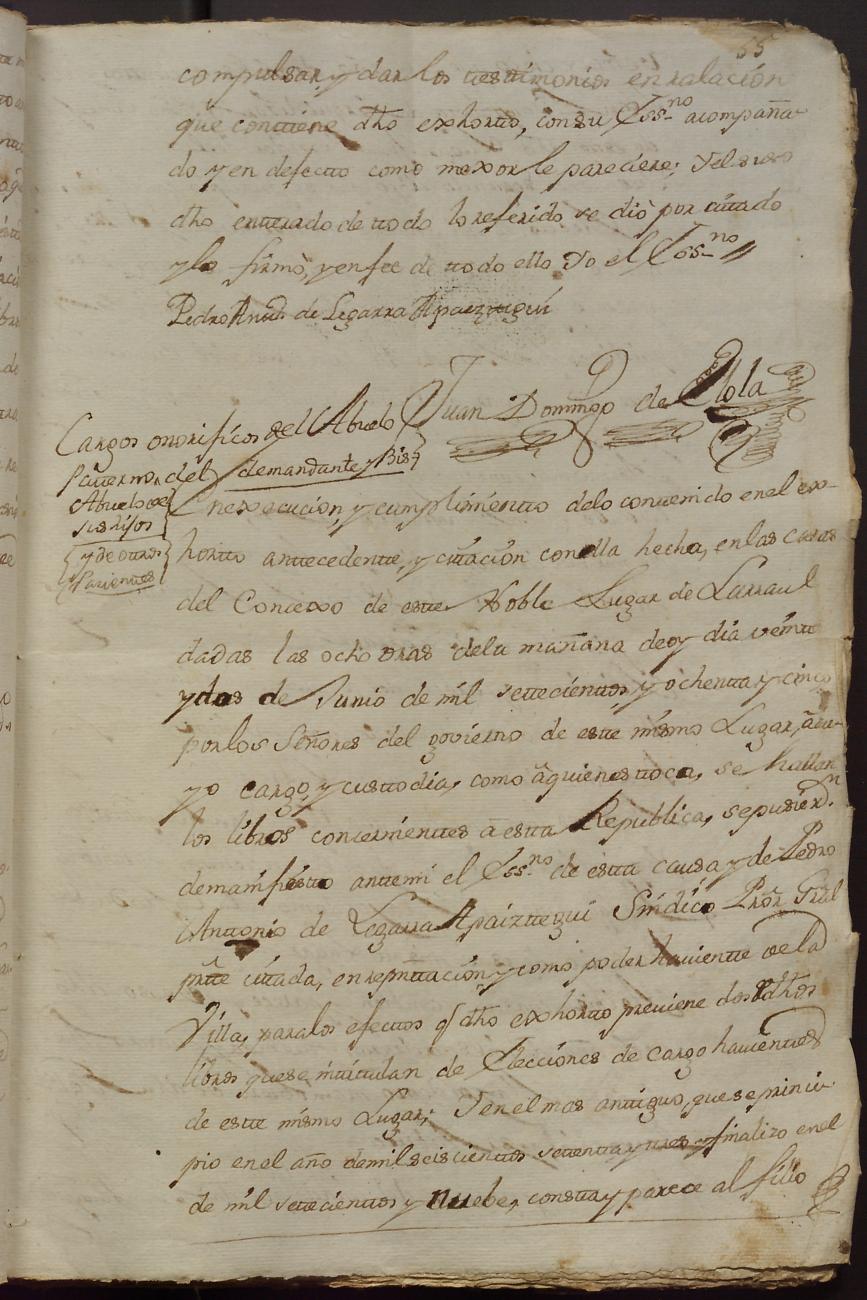 55
compulsar, y dar los testimonios en ralación
que conttiene dho exhortto, con su Essno acompaña-
do y en defectto como mexor le pareciere; y el suso
dho entterado de ttodo lo referido se dió por cittado
y lo firmó, y en fee de ttodo ello Yo el Essno //
Pedro Antt. de Legarra Apaizttigui
Juan Domingo de Elola
Cargos onorificos del Abuelo
Patterno, del demandante y Bis
Abuelo de
sus hijos
y de ottros
Parienttes
En execucion, y cumplimientto delo conttenido en el ex-
hortto anttecedentte, y cittación con ella hecha, en las casas
del Concexo de estte Noble Lugar de Larraul
dadas las ocho oras dela mañana de oy dia veintte
y dos de Junio de mil settecienttos, y ochentta y cinco
por los Señores del govierno de este mismo Lugar, a cu-
yo cargo, y custtodia, como â quienes ttoca, se hallan
los libros concernienttes a estta Republica, se pusiern.
de manifiesto antte mi el Essno de estta causa y de Pedro
Anttonio de Legarra Apaizttegui Sindico Pror Gral
partte cittada, en representtación, y como poder haviente de la
Villa, para los efecttos q dho exhortto previene dos dhos
libros que se inttittulan de Elecciónes de cargo havienttes
de estte mismo Lugar; Y en el mas anttiguo, que se princi-
pio en el año de mil seis cienttos settentta y ttres y finalizo en el
de mil settecienttos y Nuebe, constta y parece al folio